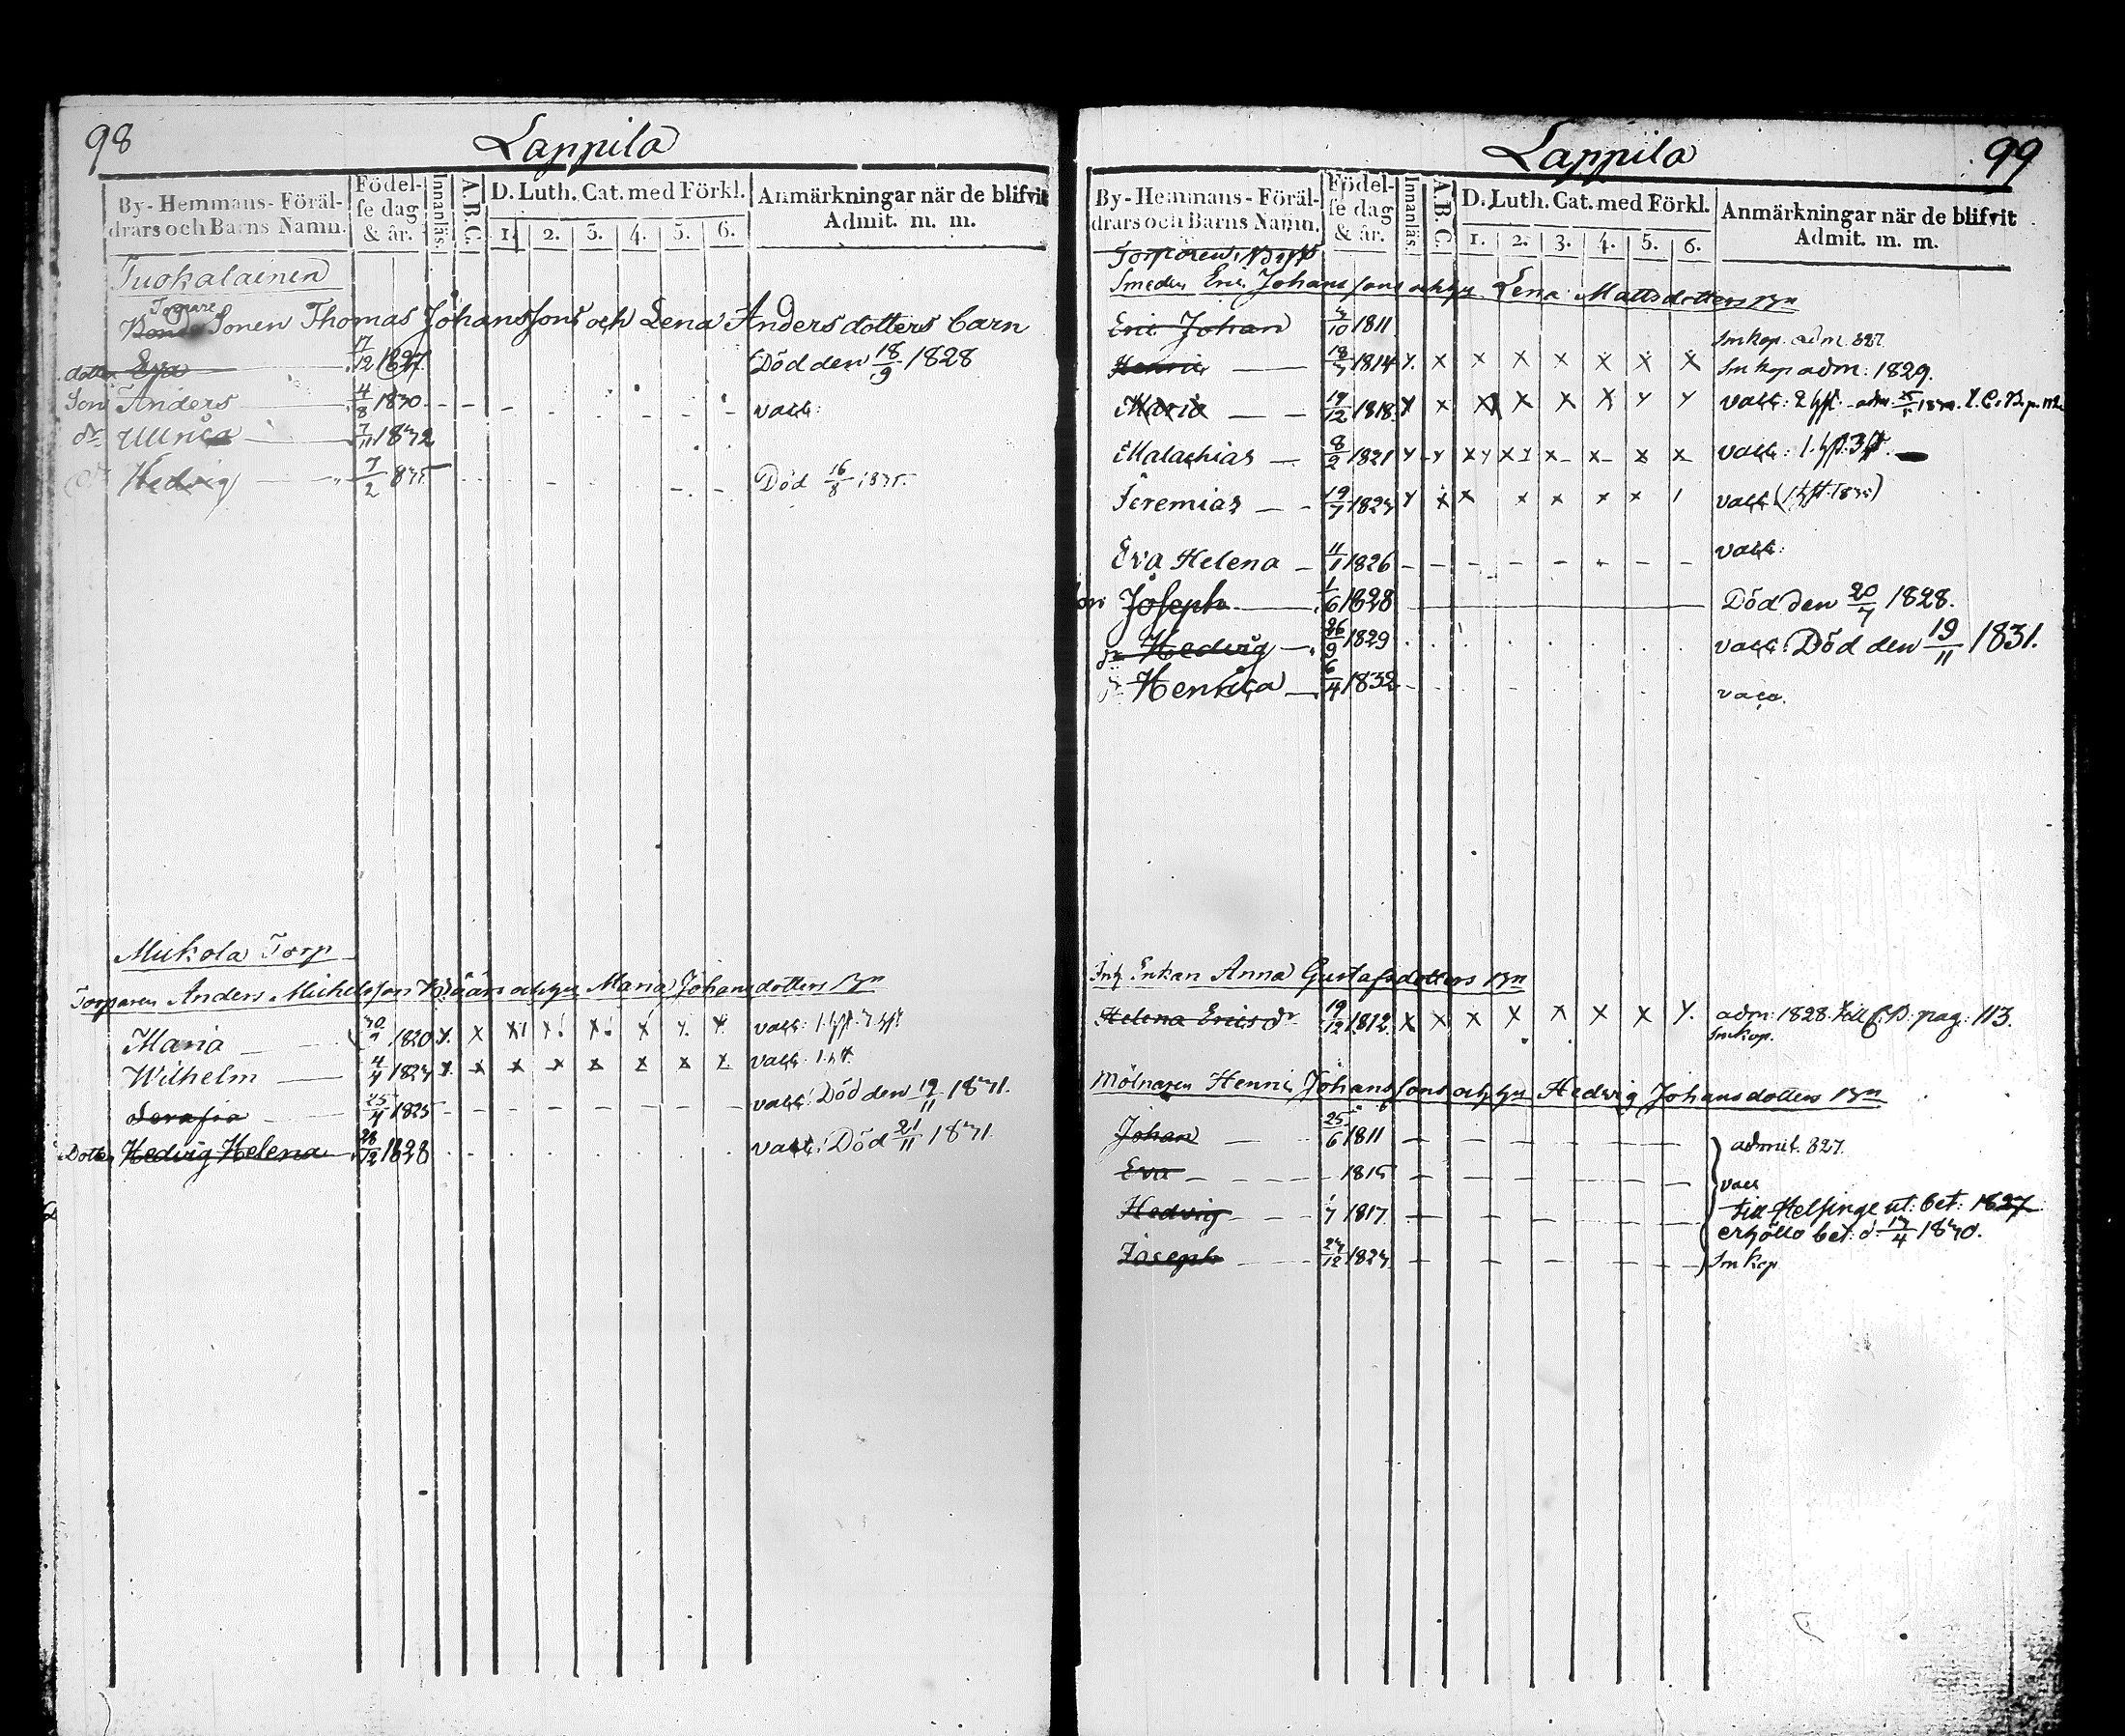 98
Lappila
By-Hemmans-Föräl-
drars och Barns Namn.
Födel-
se dag
& år.
Innanläs.
A.B.C.
D. Luth. Cat. med Förkl.
1. 2. 3. 4. 5. 6.
Anmärkningar när de blifvit
Admit. m. m.
Tuokalainen
Torpare
Bonde Sonen Thomas Johanssons och Lena Andersdotters barn
dotter Eva 17/12 1827. Död den 18/9 1828
Son Anders 4/8 1830 vacc:
dr Ulrica 7/11 1832
dr Hedvig 7/2 835 Död 16/8 1835.
Mickola Torp
Torparen Anders Michelsson och hu Maria Johansdotters Bn
Maria 1820 x. x x x x x x x vacc:
Wilhelm 4/4 1823 x x x x x x x x vacc:
Serafia 25/4 1825 vacc: Död den 19/11 1831.
Dotter Hedvig Helena 28/12 1828 vacc: Död 21/11 1831
Lappila
99
By-Hemmans-Föräl-
drars och Barns Namn.
Födel-
se dag
& år.
Innanläs.
A.B.C.
D. Luth. Cat. med Förkl.
1. 2. 3. 4. 5. 6.
Anmärkningar när de blifvit
Admit. m. m.
Torparen,
Smeden Eric Johanssons och hu Lena Mattsdotters Bn
Eric Johan 3/10 1811 Smkop. adm. 827
Henric 18/3 1814 x. x x x x x x x Smkop adm: 1829.
Maria 19/12 1818. x x x x x x x x vacc:
Malachias 8/2 1821 vacc:
Jeremias 19/7 1823 x x x x x x x vacc
Eva Helena 11/1 1826 vacc:
son Joseph 1/6 1828 Död den 20/7 1828.
dr Hedvig 26/9 1829 vacc: Död den 19/11 1831.
dr Henrica 6/4 1832 vacc.
Enkan Anna Gustafsdotters Bn
Helena Ericsdr 19/12 1812 x x x x x x x x. adm: 1828. till pag: 113.
Smkop.
Mölnaren Henric Johanssons och hu Hedvig Johansdotters Bn
Johan 25/6 1811 admit. 827.
Eva 1815 vacc
Hedvig 1/7 1817 till Helsinge ut: bet: 1827
erhöllo bet: d 13/4 1830.
Joseph 23/12 1823 Smkop